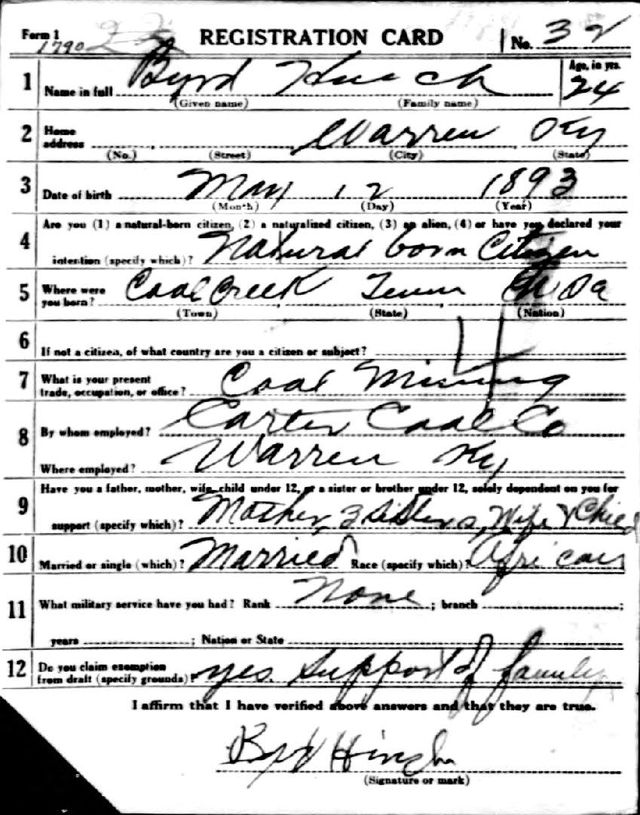 Form 1 REGISTRATION CARD No. 32
1790
1 Name in full Byrd Hinch Age, in yrs. 24
(Given name) (Family name)
2 Home address Warren Ky
(No.) (Street) (City) (State)
3 Date of birth May 12 1893
(Month) (Day) (Year)
4 Are you (1) a natural-born citizen, (2) a naturalized citizen, (3) an alien, (4) or have you declared your
intention (specify which)? Natural born Citizen
5 Where were you born? Coal Creek Tenn
(Town) (State) (Nation)
6 If not a citizen, of what country are you a citizen or subject?
7 What is your present trade, occupation, or office? Coal Mining
8 By whom employed? Carter Coal Co
Where employed? Warren Ky
9 Have you a father, mother, wife, child under 12, or a sister or brother under 12, solely dependent on you for
support (specify which)? Mother, 3 sisters, Wife & Child
10 Married or single (which)? Married Race (specify which)? African
11 What military service have you had? Rank None ; branch ;
years ; Nation or State
12 Do you claim exemption from draft (specify grounds)? yes. Support of family
I affirm that I have verified above answers and that they are true.
Byrd Hinch
(Signature or mark)